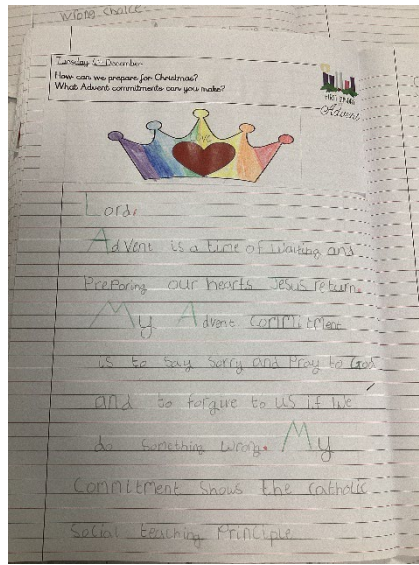 wrong choice.
Tuesday 5th December
How can we prepare for Christmas?
What Advent commitments can you make?
Advent
Lord,
Advent is a time of waiting and
Preparing our hearts Jesus return.
My Advent Commitment
is to Say Sorry and Pray to God
and to forgive to us if we
do Something wrong. My
Commitment Shows the Catholic
Social teaching Principle